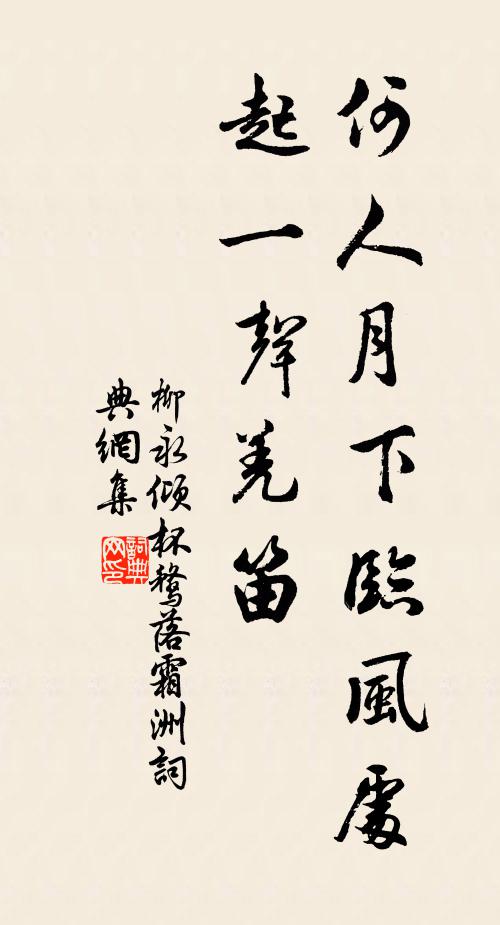 何人月下臨風處
起一聲羌笛
柳永傾杯鶩落霜洲詞
典網集
詞典
网印